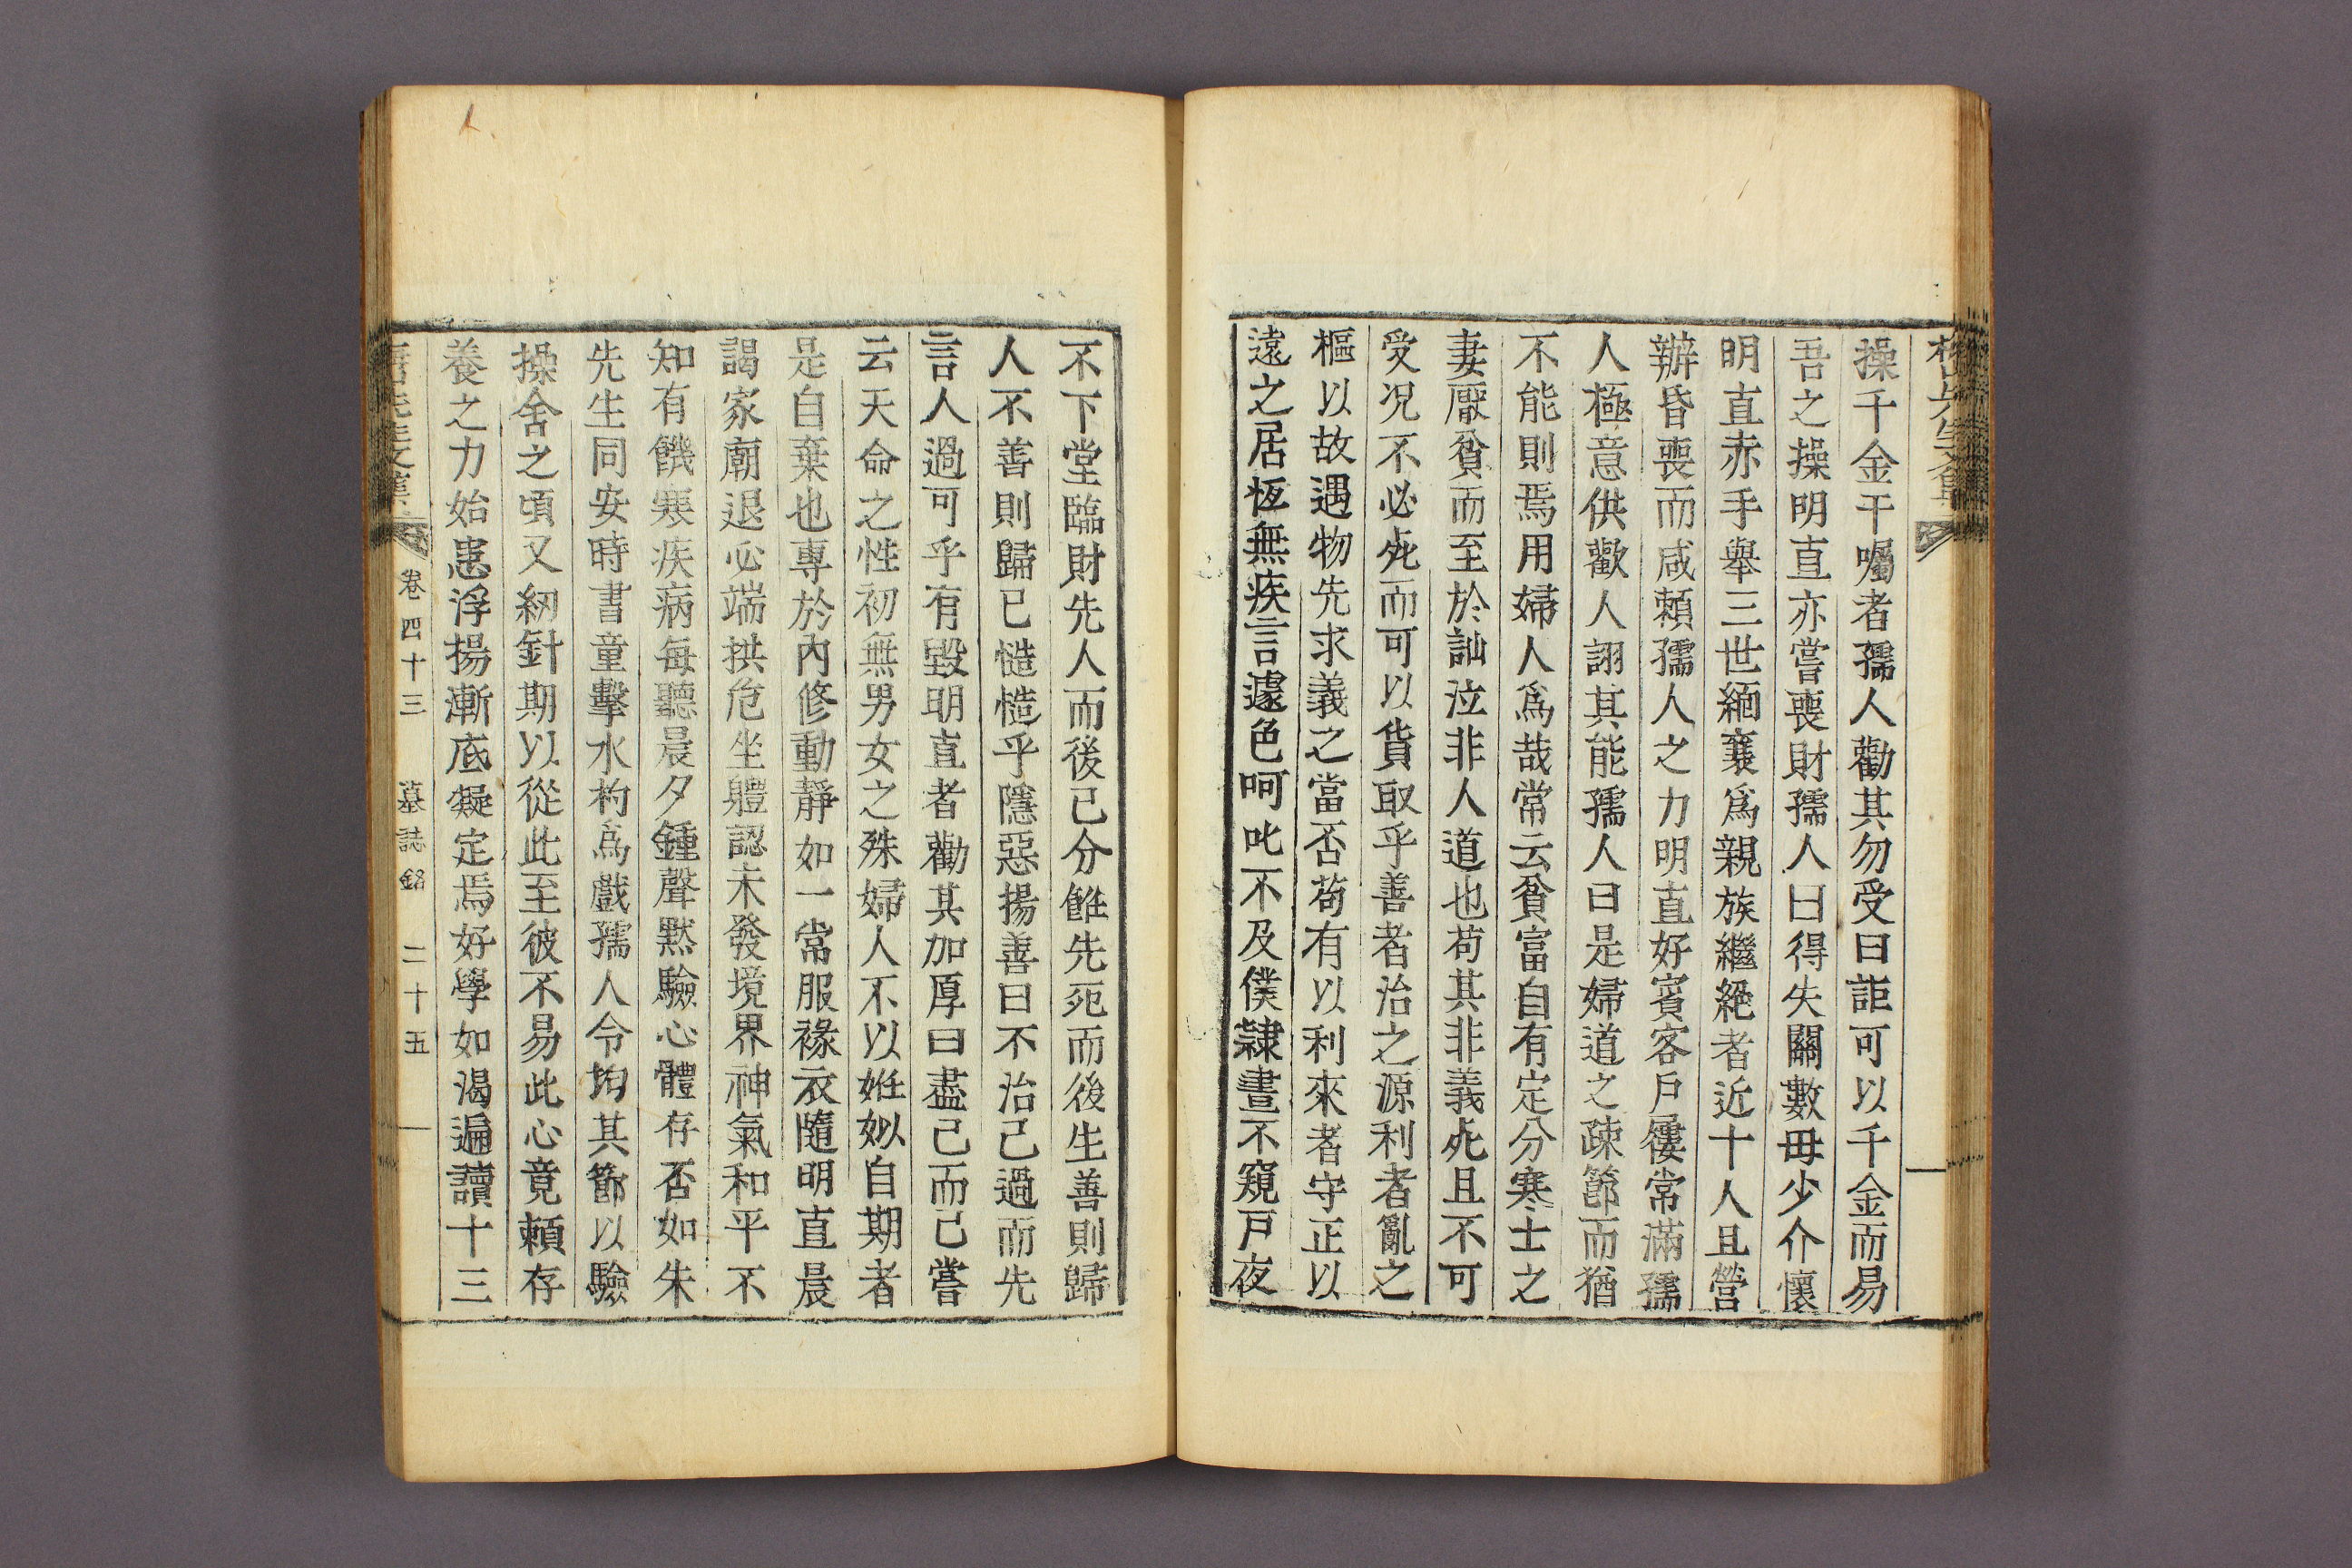 操千金干囑者孺人勸其勿受曰詎可以千金而易
吾之操明直亦嘗喪財孺人曰得失關數毋少介懷
明直赤手舉三世緬襄爲親族繼絶者近十人且營
辦昏喪而咸賴孺人之力明直好賓客戶屨常滿孺
人極意供歡人詡其能孺人曰是婦道之疎節而猶
不能則焉用婦人爲哉常云貧富自有定分寒士之
妻厭貧而至於訕泣非人道也苟其非義死且不可
受况不必死而可以貨取乎善者治之源利者亂之
樞以故遇物先求義之當否苟有以利來者守正以
遠之居恆無疾言遽色呵叱不及僕隸晝不窺戸夜
不下堂臨財先人而後己分雠先死而後生善則歸
人不善則歸已慥慥乎隱惡揚善曰不治己過而先
言人過可乎有毀明直者勸其加厚曰盡己而已嘗
云天命之性初無男女之殊婦人不以姙姒自期者
是自棄也專於內修動靜如一常服褖衣隨明直晨
謁家廟退必端拱危坐體認未發境界神氣和平不
知有饑寒疾病每聽晨夕鍾聲黙驗心體存否如朱
先生同安時書童擊水杓爲戲孺人令均其節以驗
操舍之頃又紉針期以從此至彼不易此心竟賴存
養之力始患浮揚漸底凝定焉好學如渴遍讀十三
卷四十三 墓誌銘 二十五